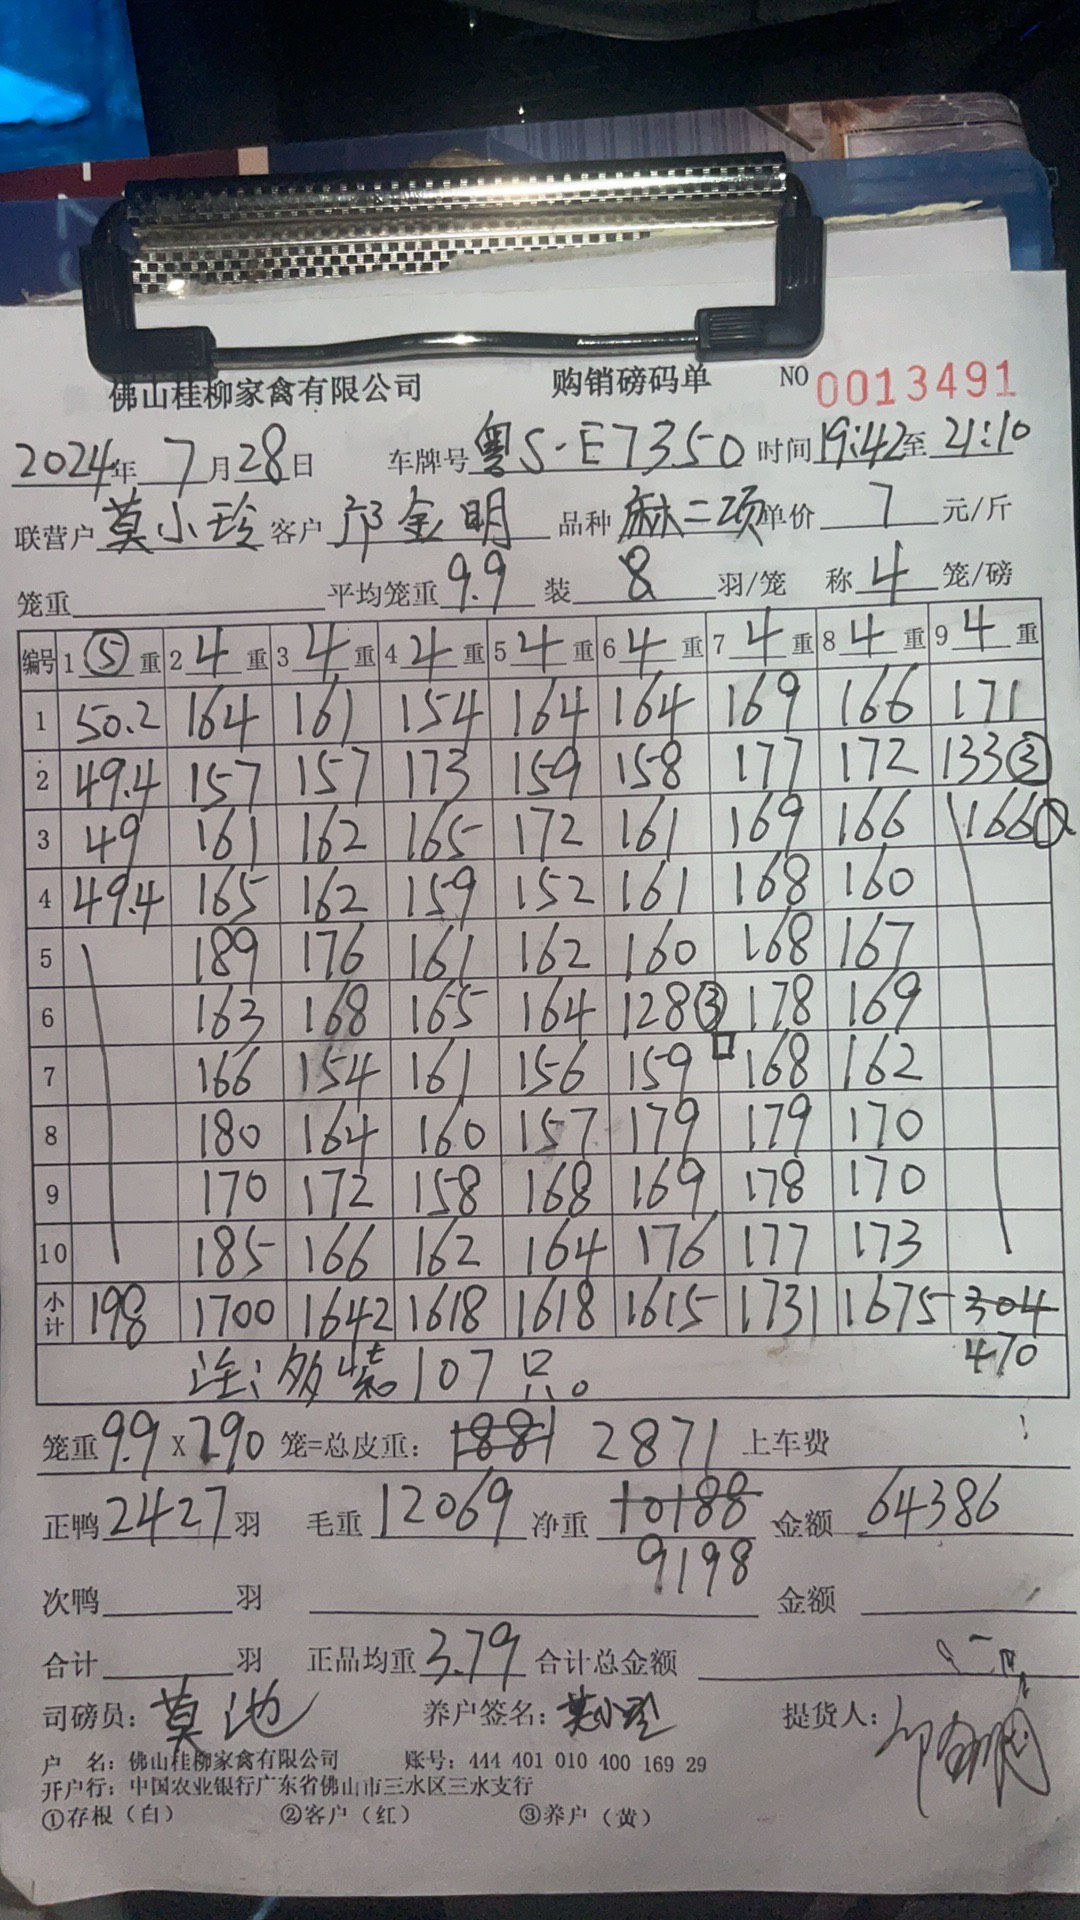 佛山桂柳家禽有限公司 购销磅码单 NO 0013491
2024年 7月28日 车牌号 粤S·E7350 时间19:42至21:10
联营户 莫小玲 客户 邝金明 品种 麻二项 单价 7 元/斤
笼重 平均笼重 9.9 装 8 羽/笼 称 4 笼/磅
编号 1 ⑤ 重 2 4 重 3 4 重 4 4 重 5 4 重 6 4 重 7 4 重 8 4 重 9 4 重
1 50.2 164 161 154 164 164 169 166 171
2 49.4 157 157 173 159 158 177 172 133③
3 49 161 162 165 172 161 169 166 166
4 49.4 165 162 159 152 161 168 160
5 189 176 161 162 160 168 167
6 163 168 165 164 128③ 178 169
7 166 154 161 156 159 168 162
8 180 164 160 157 179 179 170
9 170 172 158 168 169 178 170
10 185 166 162 164 176 177 173
小计 198 1700 1642 1618 1618 1615 1731 1675 304
470
注:多装107只。
笼重 9.9 X 290 笼=总皮重: 1881 2871 上车费
正鸭 2427 羽 毛重 12069 净重 10188 金额 64386
9198
次鸭 羽 金额
合计 羽 正品均重 3.79 合计总金额
司磅员: 莫池 养户签名: 莫小玲 提货人:
户 名: 佛山桂柳家禽有限公司 账号: 444 401 010 400 169 29
开户行: 中国农业银行广东省佛山市三水区三水支行
①存根（白） ②客户（红） ③养户（黄）